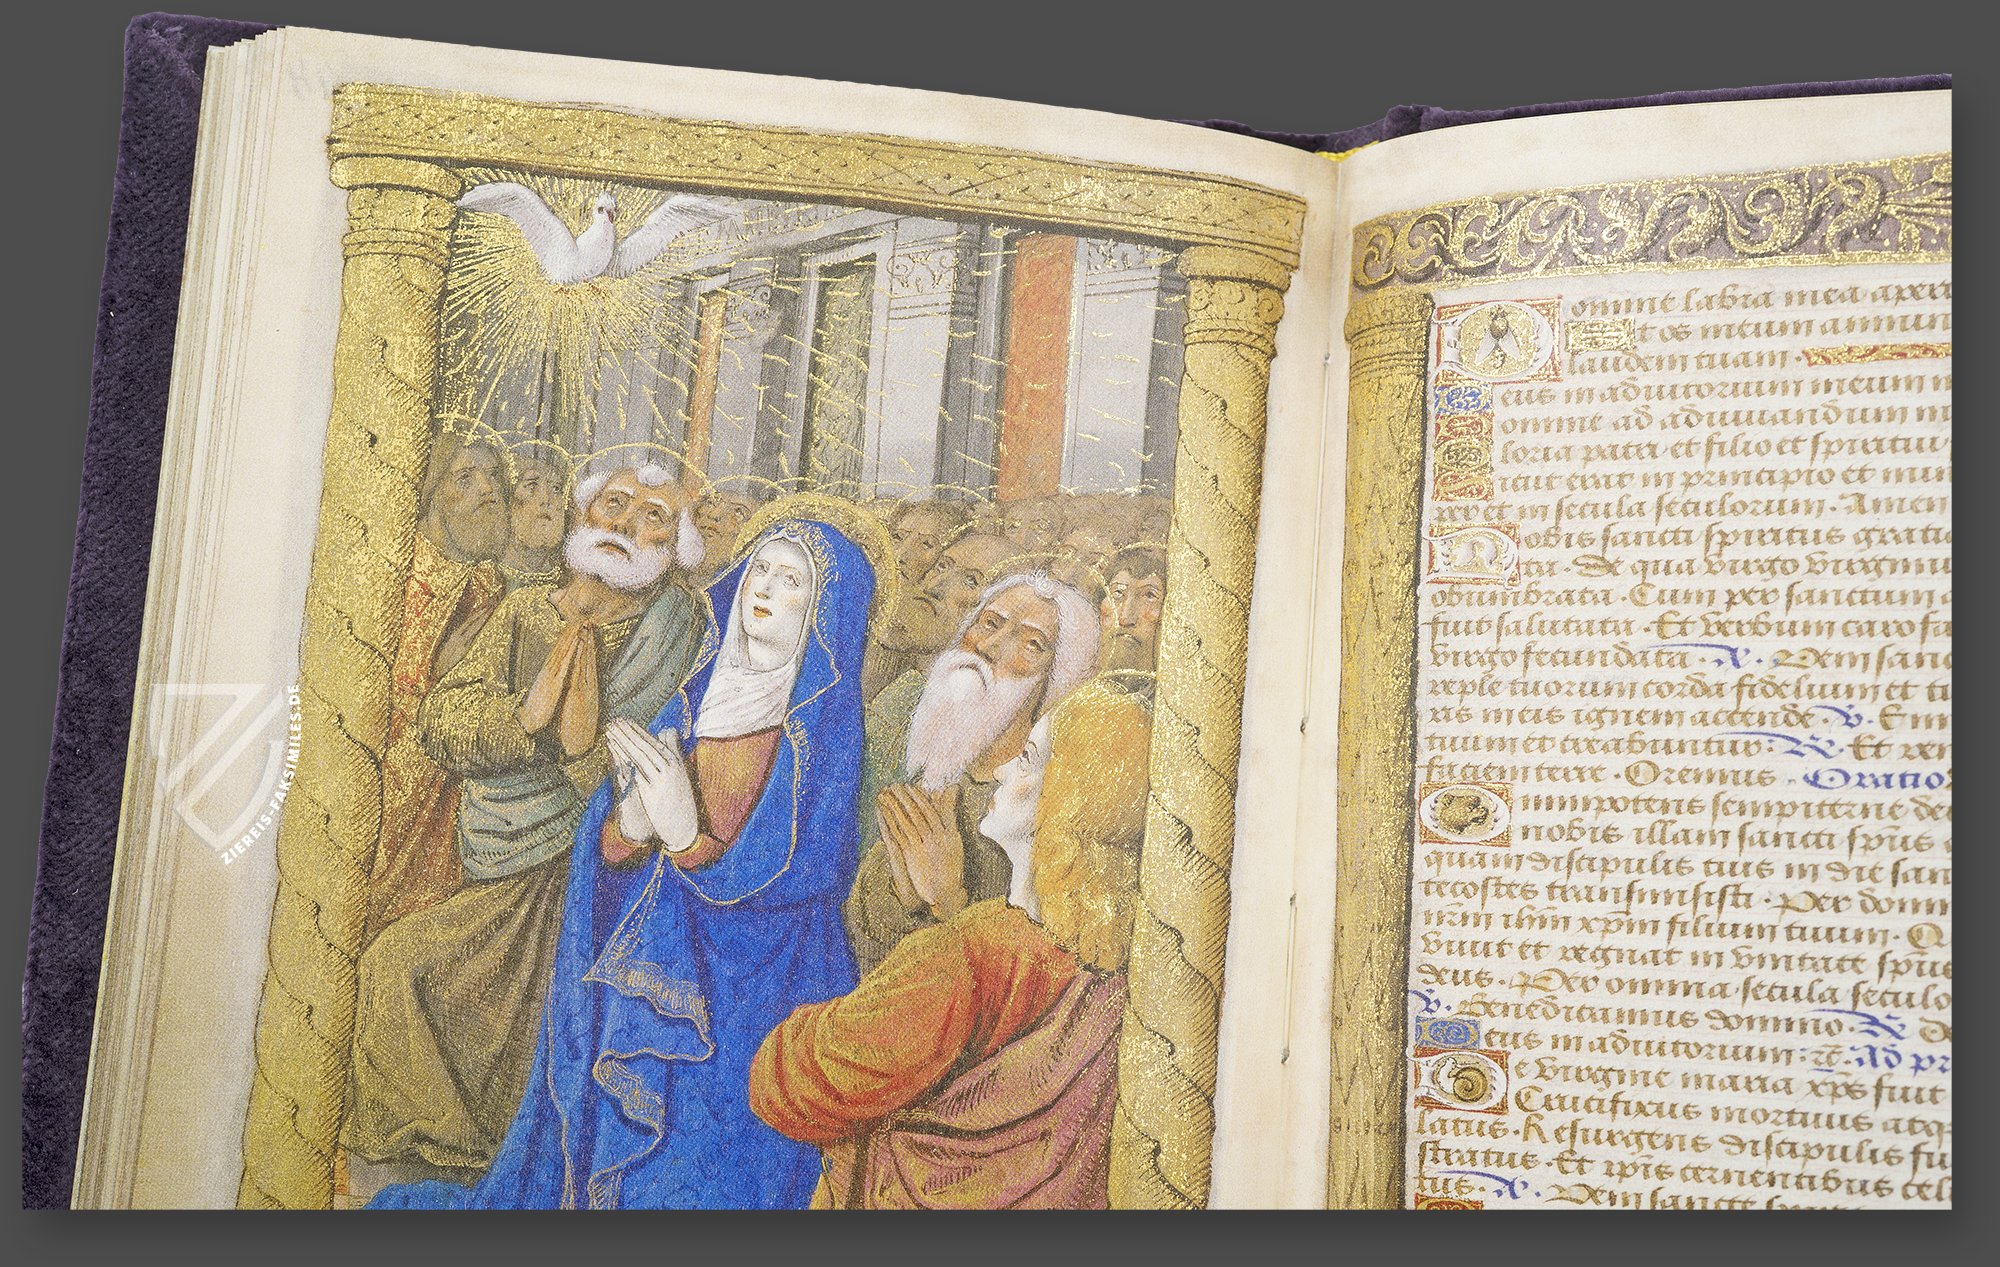 ZIEREIS-FAKSIMILES.DE
Domine labia mea aperi
Et os meum annun
laudem tuam.
Deus in adiutorium meum in
Domine ad adiuuandum m
Gloria patri et filio et spiritui
Sicut erat in principio et nun
per et in secula seculorum. Amen
Nobis sancti spiritus gratia
ta. De qua virgo virginum
obumbrata. Cum per sanctum a
fuit salutata. Et verbum caro fa
virgo fecundata. Veni sanc
reple tuorum corda fidelium et tu
ris in eis ignem accende. v. Emi
tuum et creabuntur. R. Et ren
faciem terre. Oremus. Oratio
Omnipotens sempiterne de
nobis illam sancti spūs
quam discipulis tuis in die san
tecostes transmisisti. Per domi
nr̄m ihm xpm filium tuum. Q
viuit et regnat in vnitate spūs
deus. Per omnia secula seculo
v. Benedicamus domino. R. De
Deus in adiutorium: Ad pr
De virgine maria xps fuit
Crucifixus mortuus atq
latus. Resurgens discipulis fu
stratus. Et ipis cernentibus cel
tus. Veni sancte spiritus